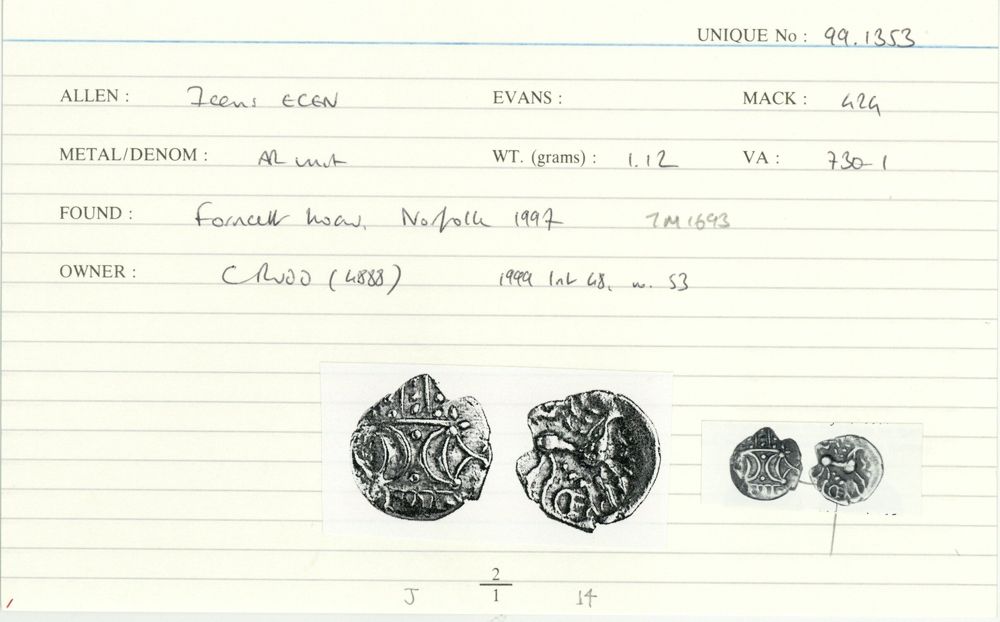 UNIQUE No : 99.1353
ALLEN : Icens ECEN EVANS : MACK : 424
METAL/DENOM : AR unit WT. (grams) : 1.12 VA : 730-1
FOUND : Forncett hoard, Norfolk 1997 TM1693
OWNER : CRUDD (4888) 1999 List 48, no. 53
2
J 1 14